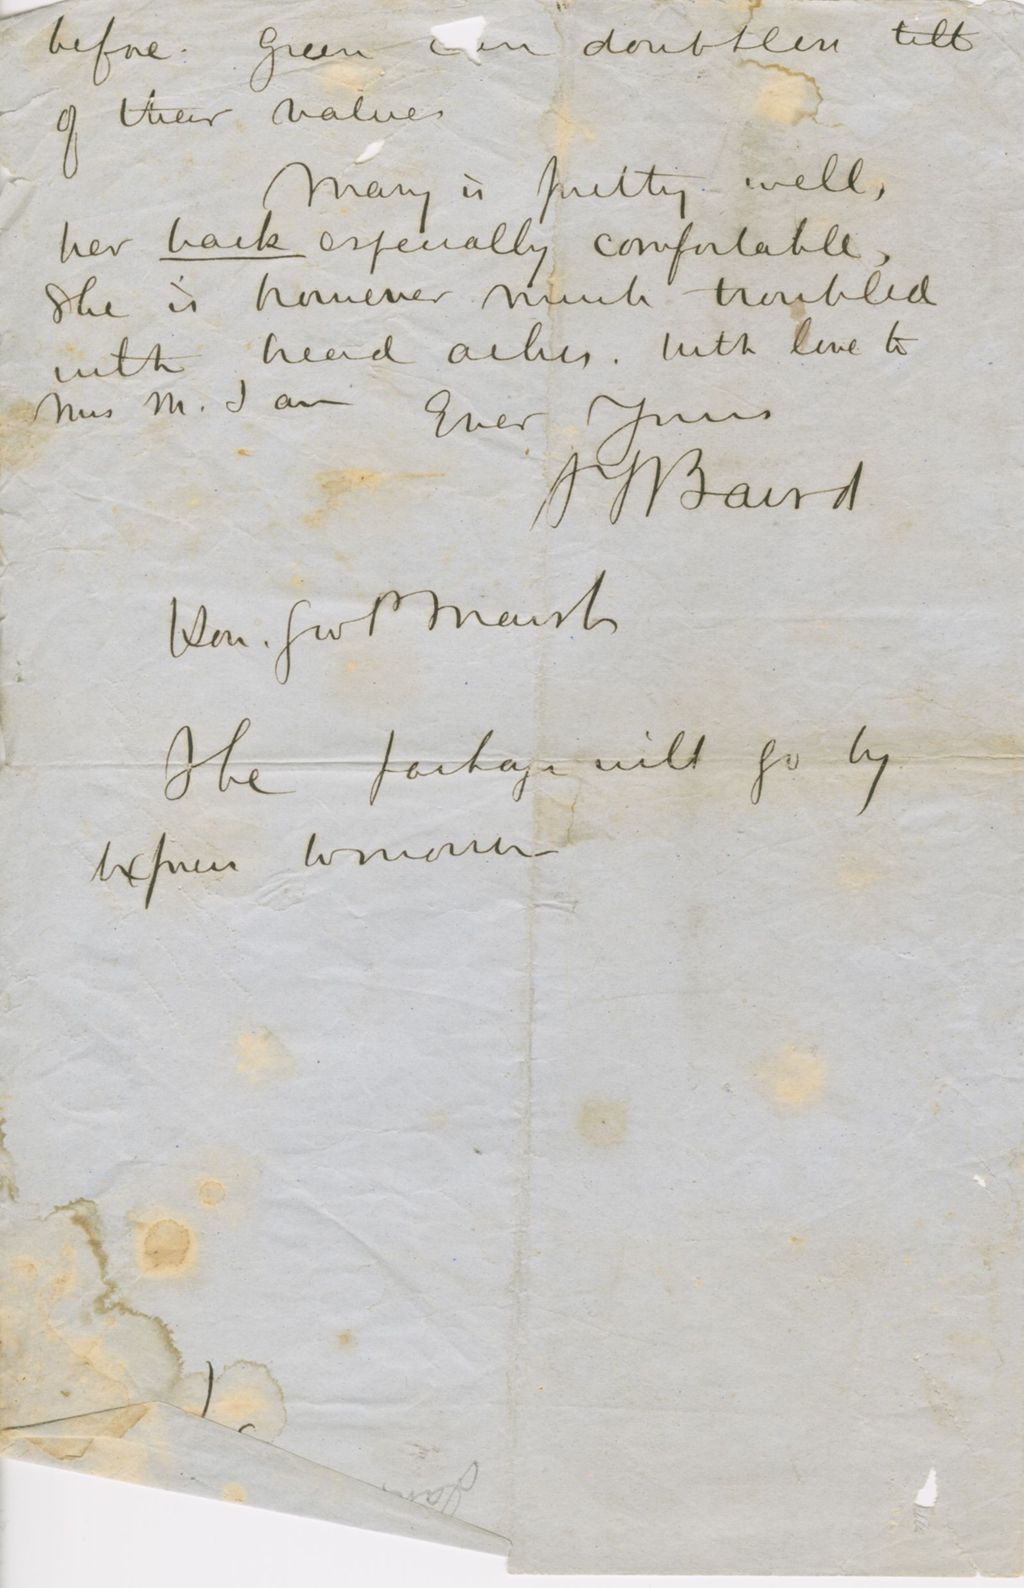 before. Green can doubtless tell
of their values
Mary is pretty well,
her back especially comfortable,
She is however much troubled
with head aches. With love to
Mrs M. I am Ever Yours
S F Baird
Hon. Geo P Marsh
The package will go by
express tomorrow